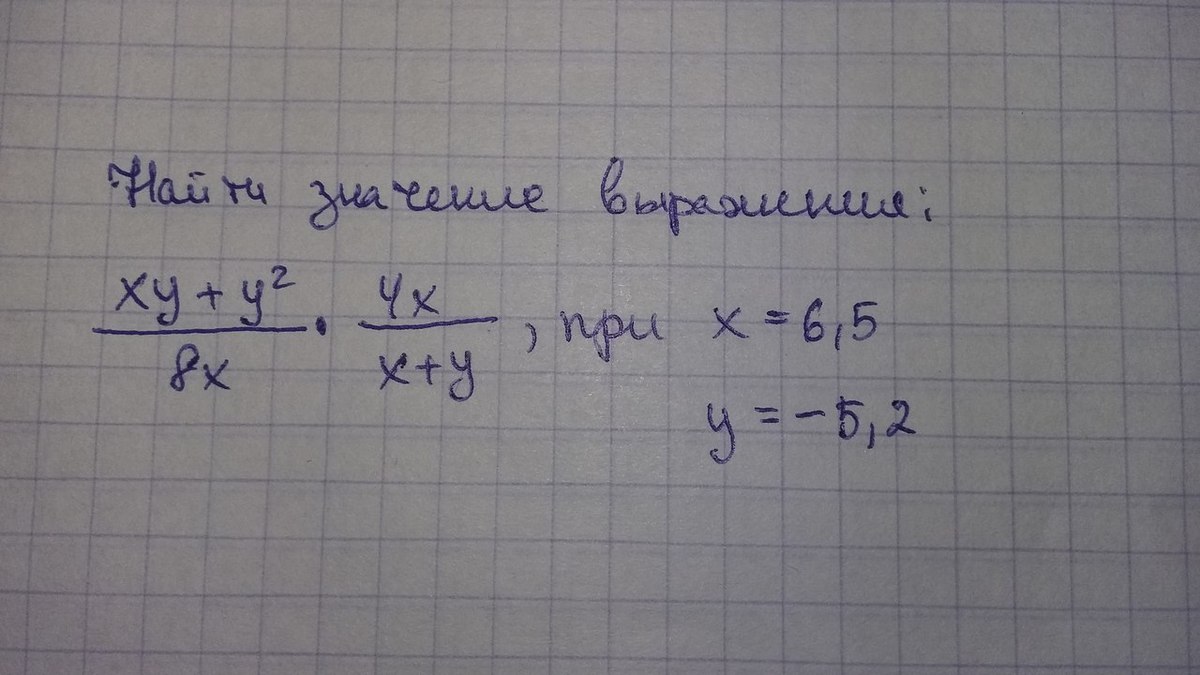 Найти значение выражения:
(xy + y²)/(8x) · (4x)/(x+y), при x = 6,5
y = -5,2